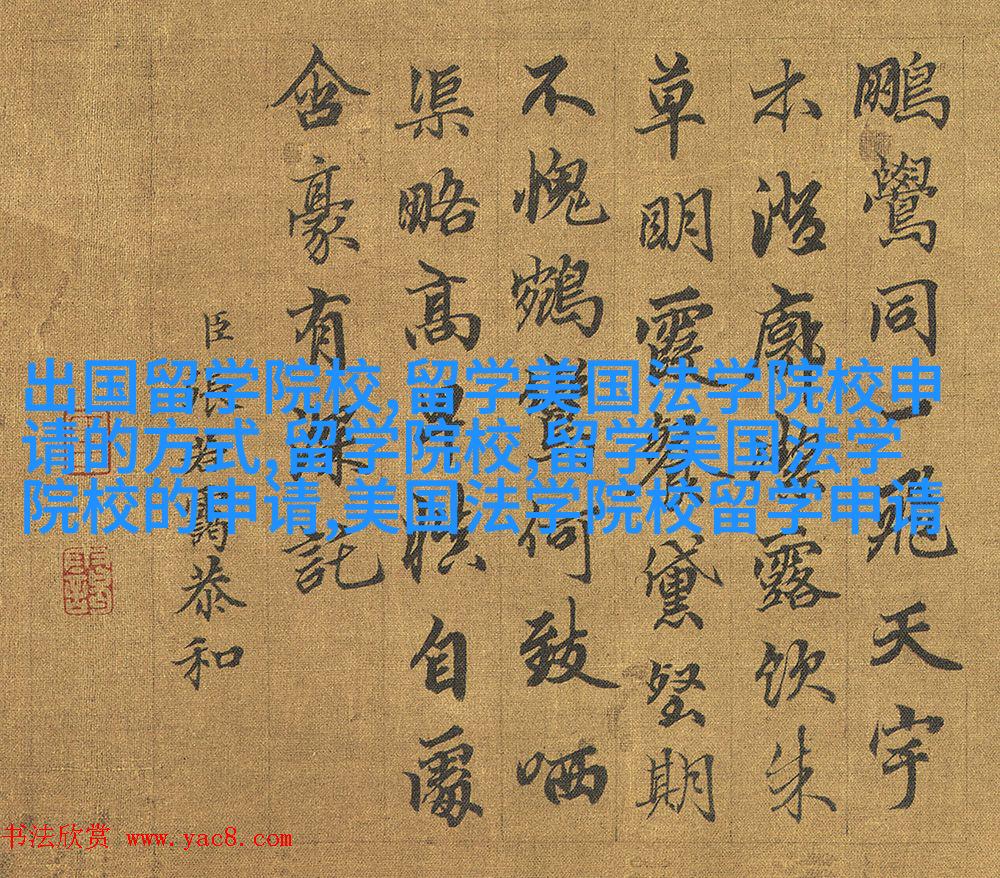 鵬鷽同一飛天宇
木澄廓露飲朱
草明霞餐黛壑期
不愧鶴鷺何致哂
渠略高自屬
含豪有託
臣張若靄恭和
出国留学院校,留学美国法学院校申
请的方式,留学院校,留学美国法学
院校的申请,美国法学院校留学申请
书法欣赏 www.yac8.com